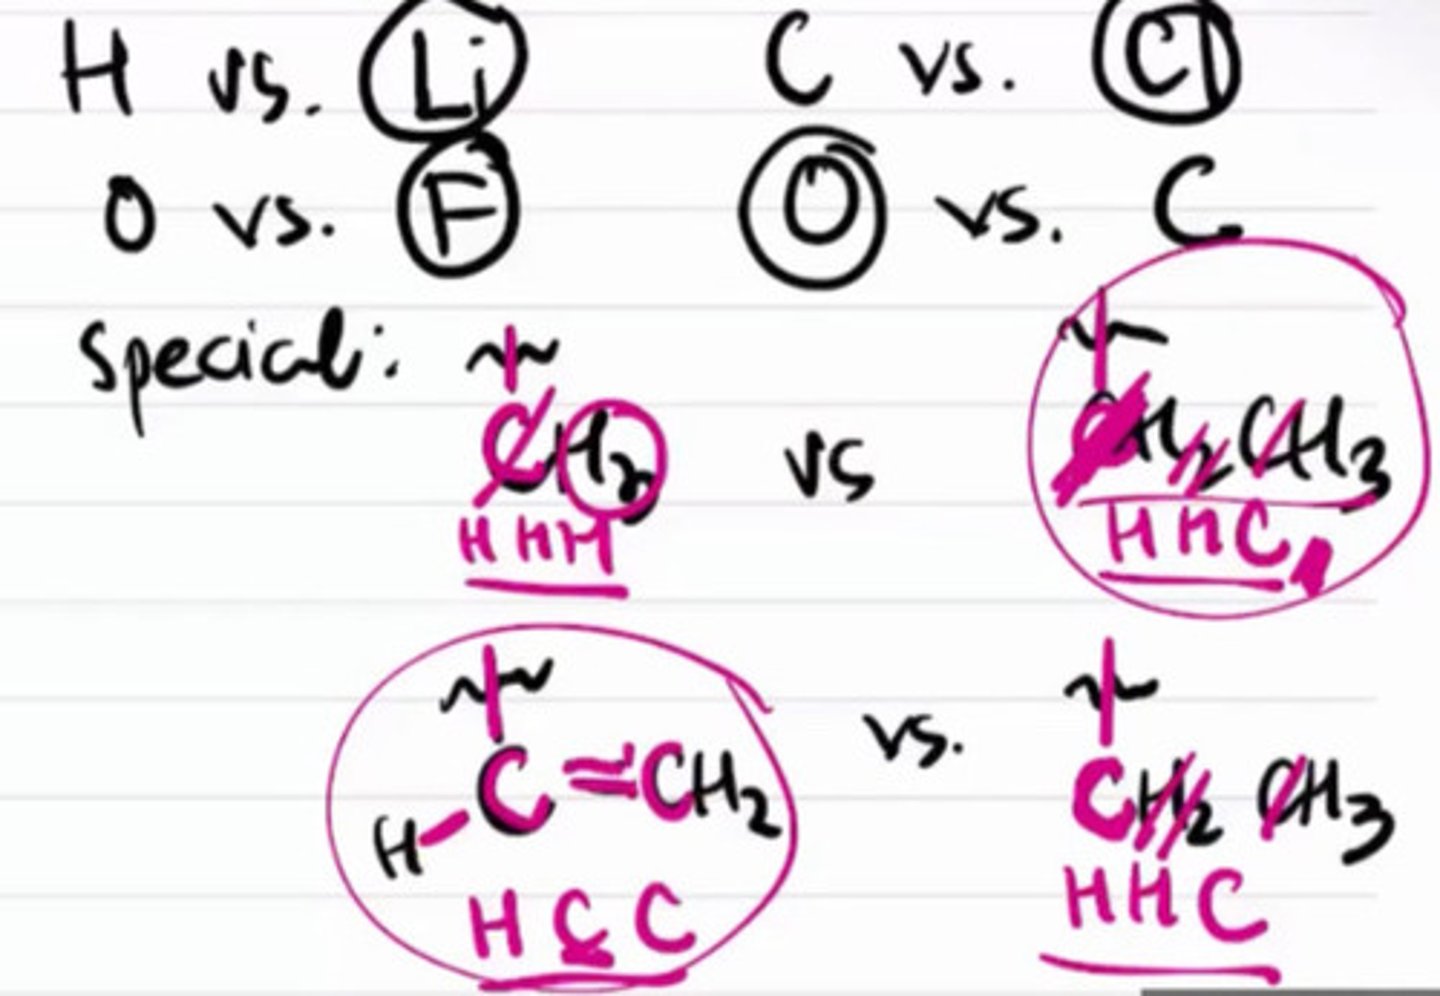 H vs. Li C vs. Cl
O vs. F O vs. C
Special: CH3 vs CH2CH3
H H H H H C
H-C=CH2 vs. CH2 CH3
H C C H H C